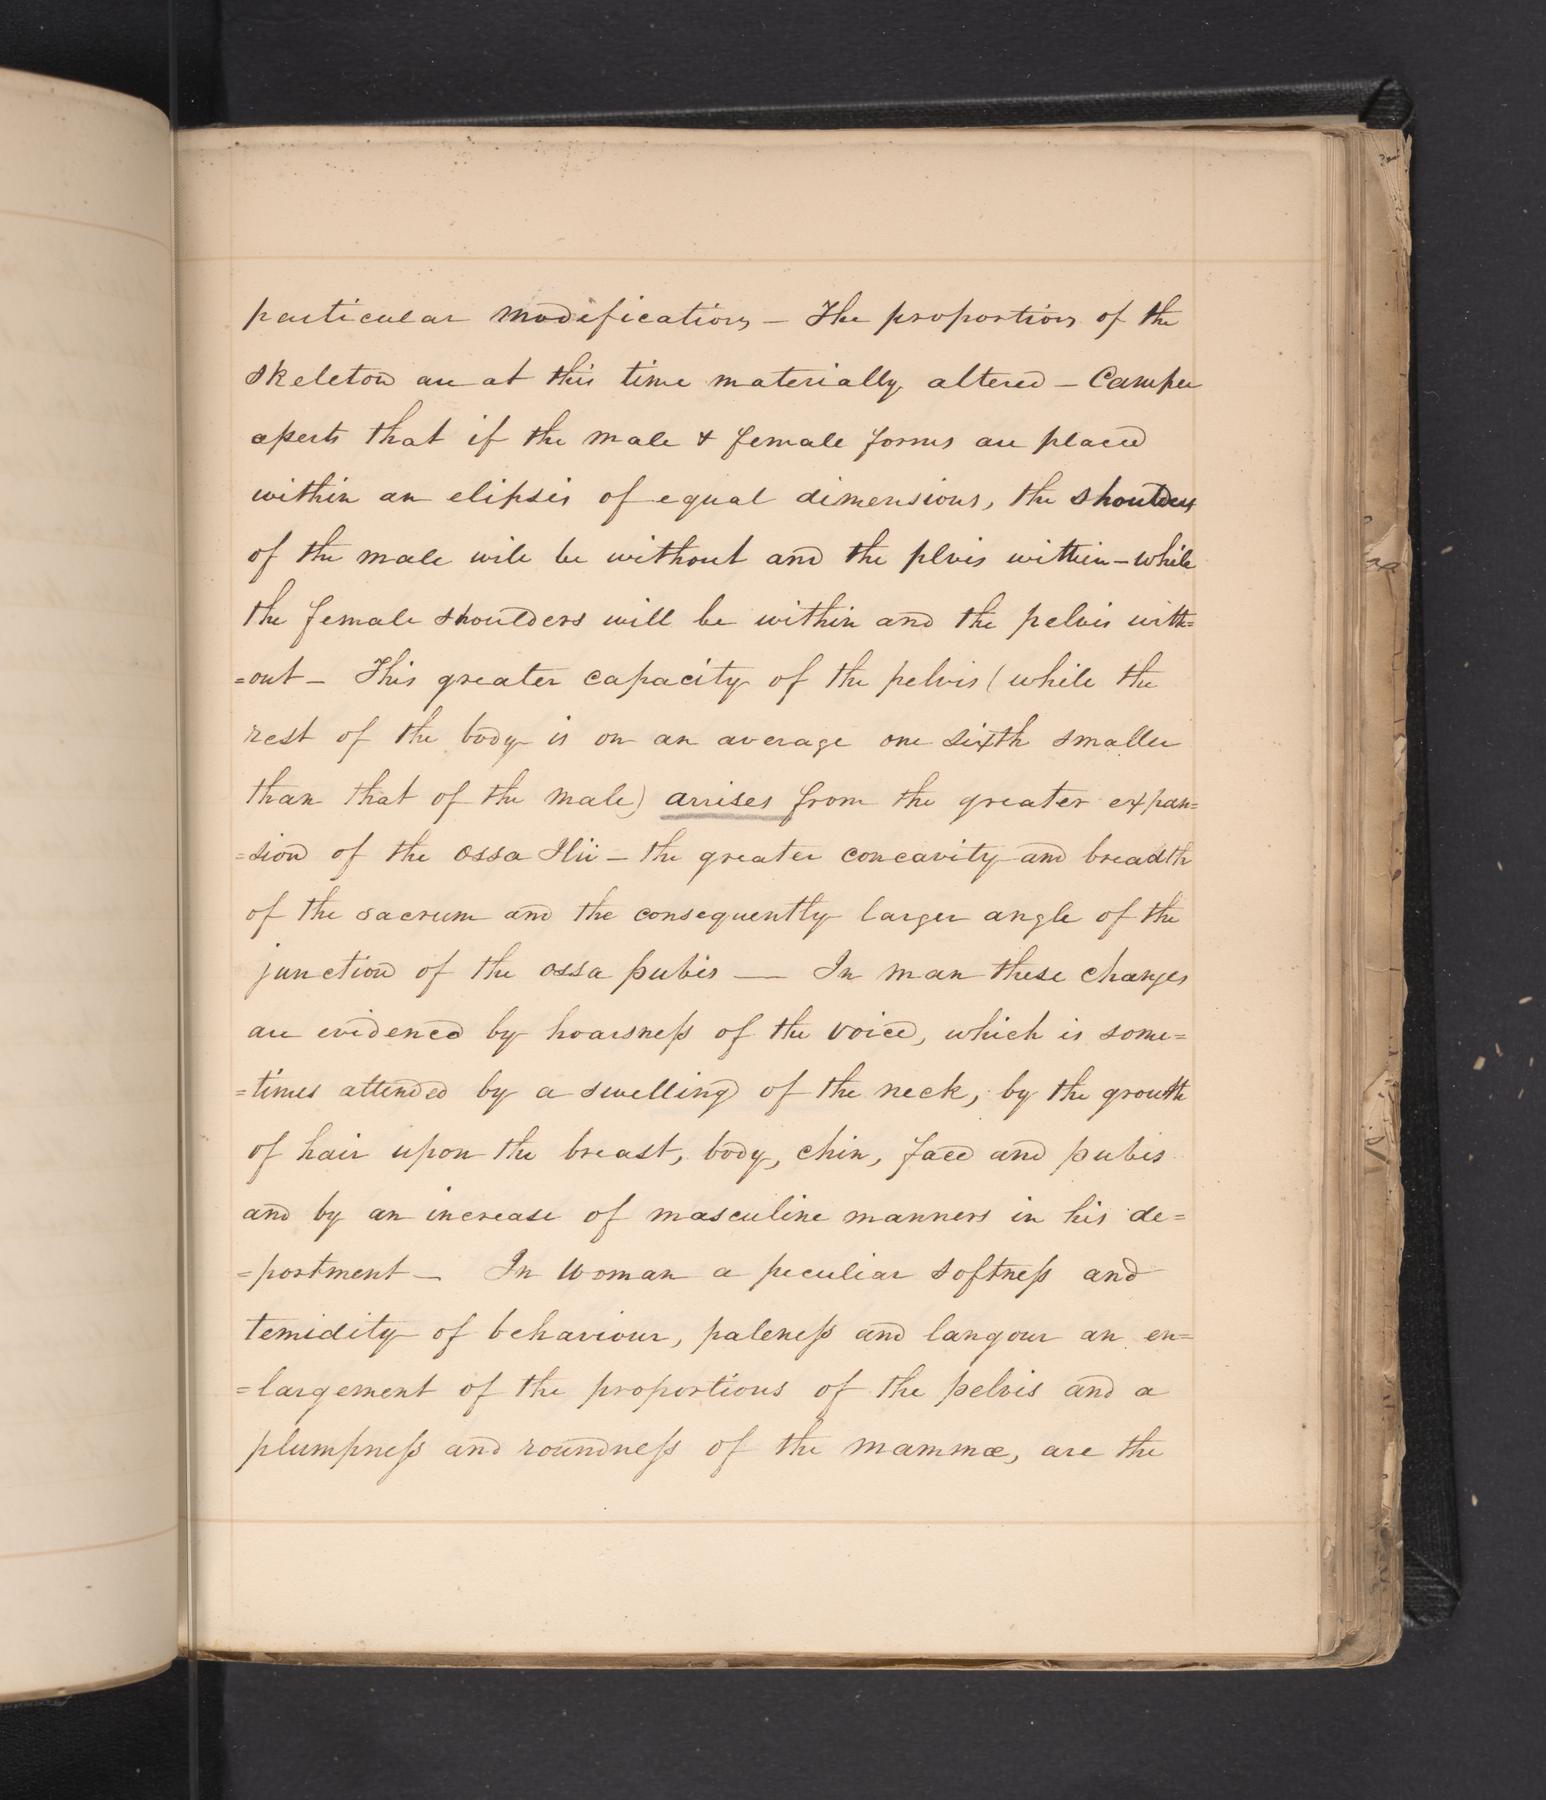 particular modifications – The proportions of the
skeleton are at this time materially altered – Camper
asserts that if the male & female forms are placed
within an elipsis of equal dimensions, the shoulders
of the male will be without and the plvis within – while
the female shoulders will be within and the pelvis with=
=out – This greater capacity of the pelvis (while the
rest of the body is on an average one sixth smaller
than that of the male) arrises from the greater expan=
=sion of the ossa Ilii – the greater concavity and breadth
of the sacrum and the consequently larger angle of the
junction of the ossa pubis — In man these changes
are evidenced by hoarsness of the voice, which is some=
=times attended by a swelling of the neck, by the growth
of hair upon the breast, body, chin, face and pubis
and by an increase of masculine manners in his de=
=portment – In woman a peculiar softness and
temidity of behaviour, paleness and langour an en=
=largement of the proportions of the pelvis and a
plumpness and roundness of the mammæ, are the